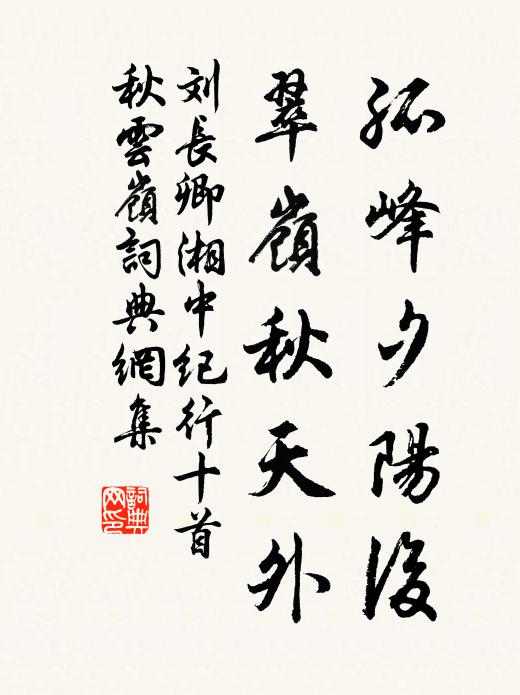 孤峰夕陽後
翠嶺秋天外
刘長卿湘中纪行十首
秋雲嶺詞典網集
詞典网印